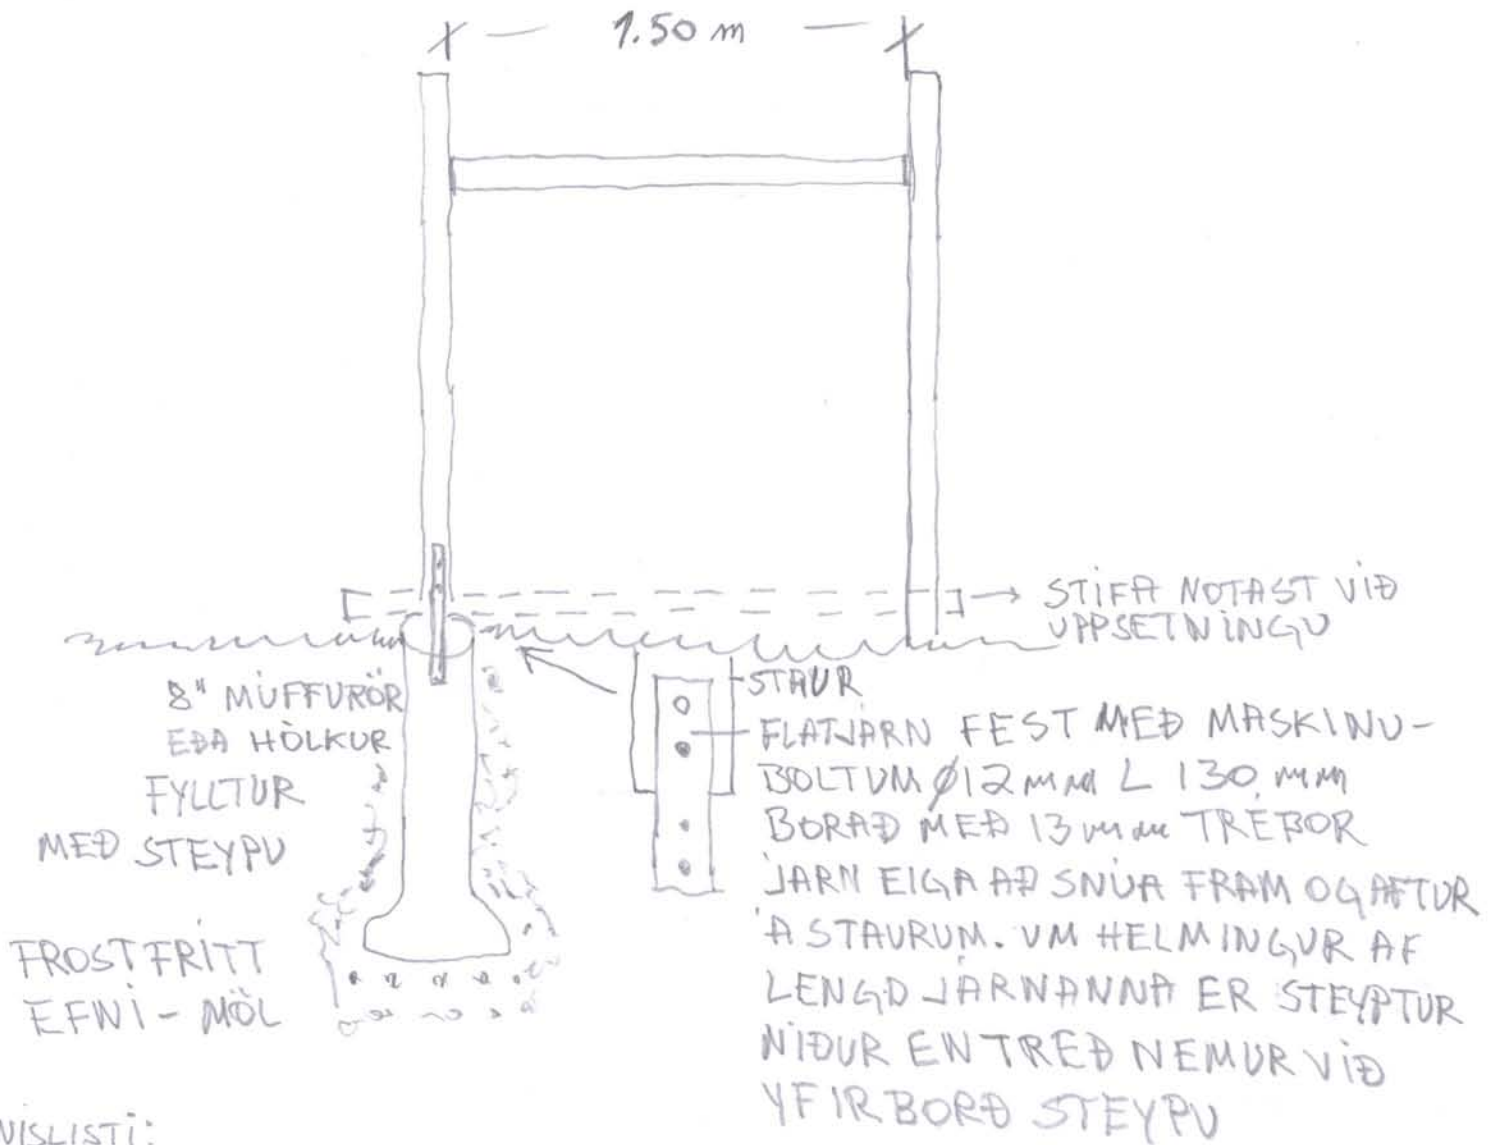 1.50 m
STÍFA NOTAST VIÐ
UPPSETNINGU
8" MÚFFURÖR
EÐA HÓLKUR
FYLLTUR
MEÐ STEYPU
FROSTFRÍTT
EFNI - MÖL
STAUR
FLATJÁRN FEST MEÐ MASKINU-
BOLTUM Ø12 mm L 130 mm
BORAÐ MEÐ 13 mm TRÉBOR
JÁRN EIGA AÐ SNÚA FRAM OG AFTUR
Á STAURUM. UM HELMINGUR AF
LENGD JÁRNANNA ER STEYPTUR
NIÐUR EN TRÉÐ NEMUR VIÐ
YFIRBORÐ STEYPU
NISLISTI: